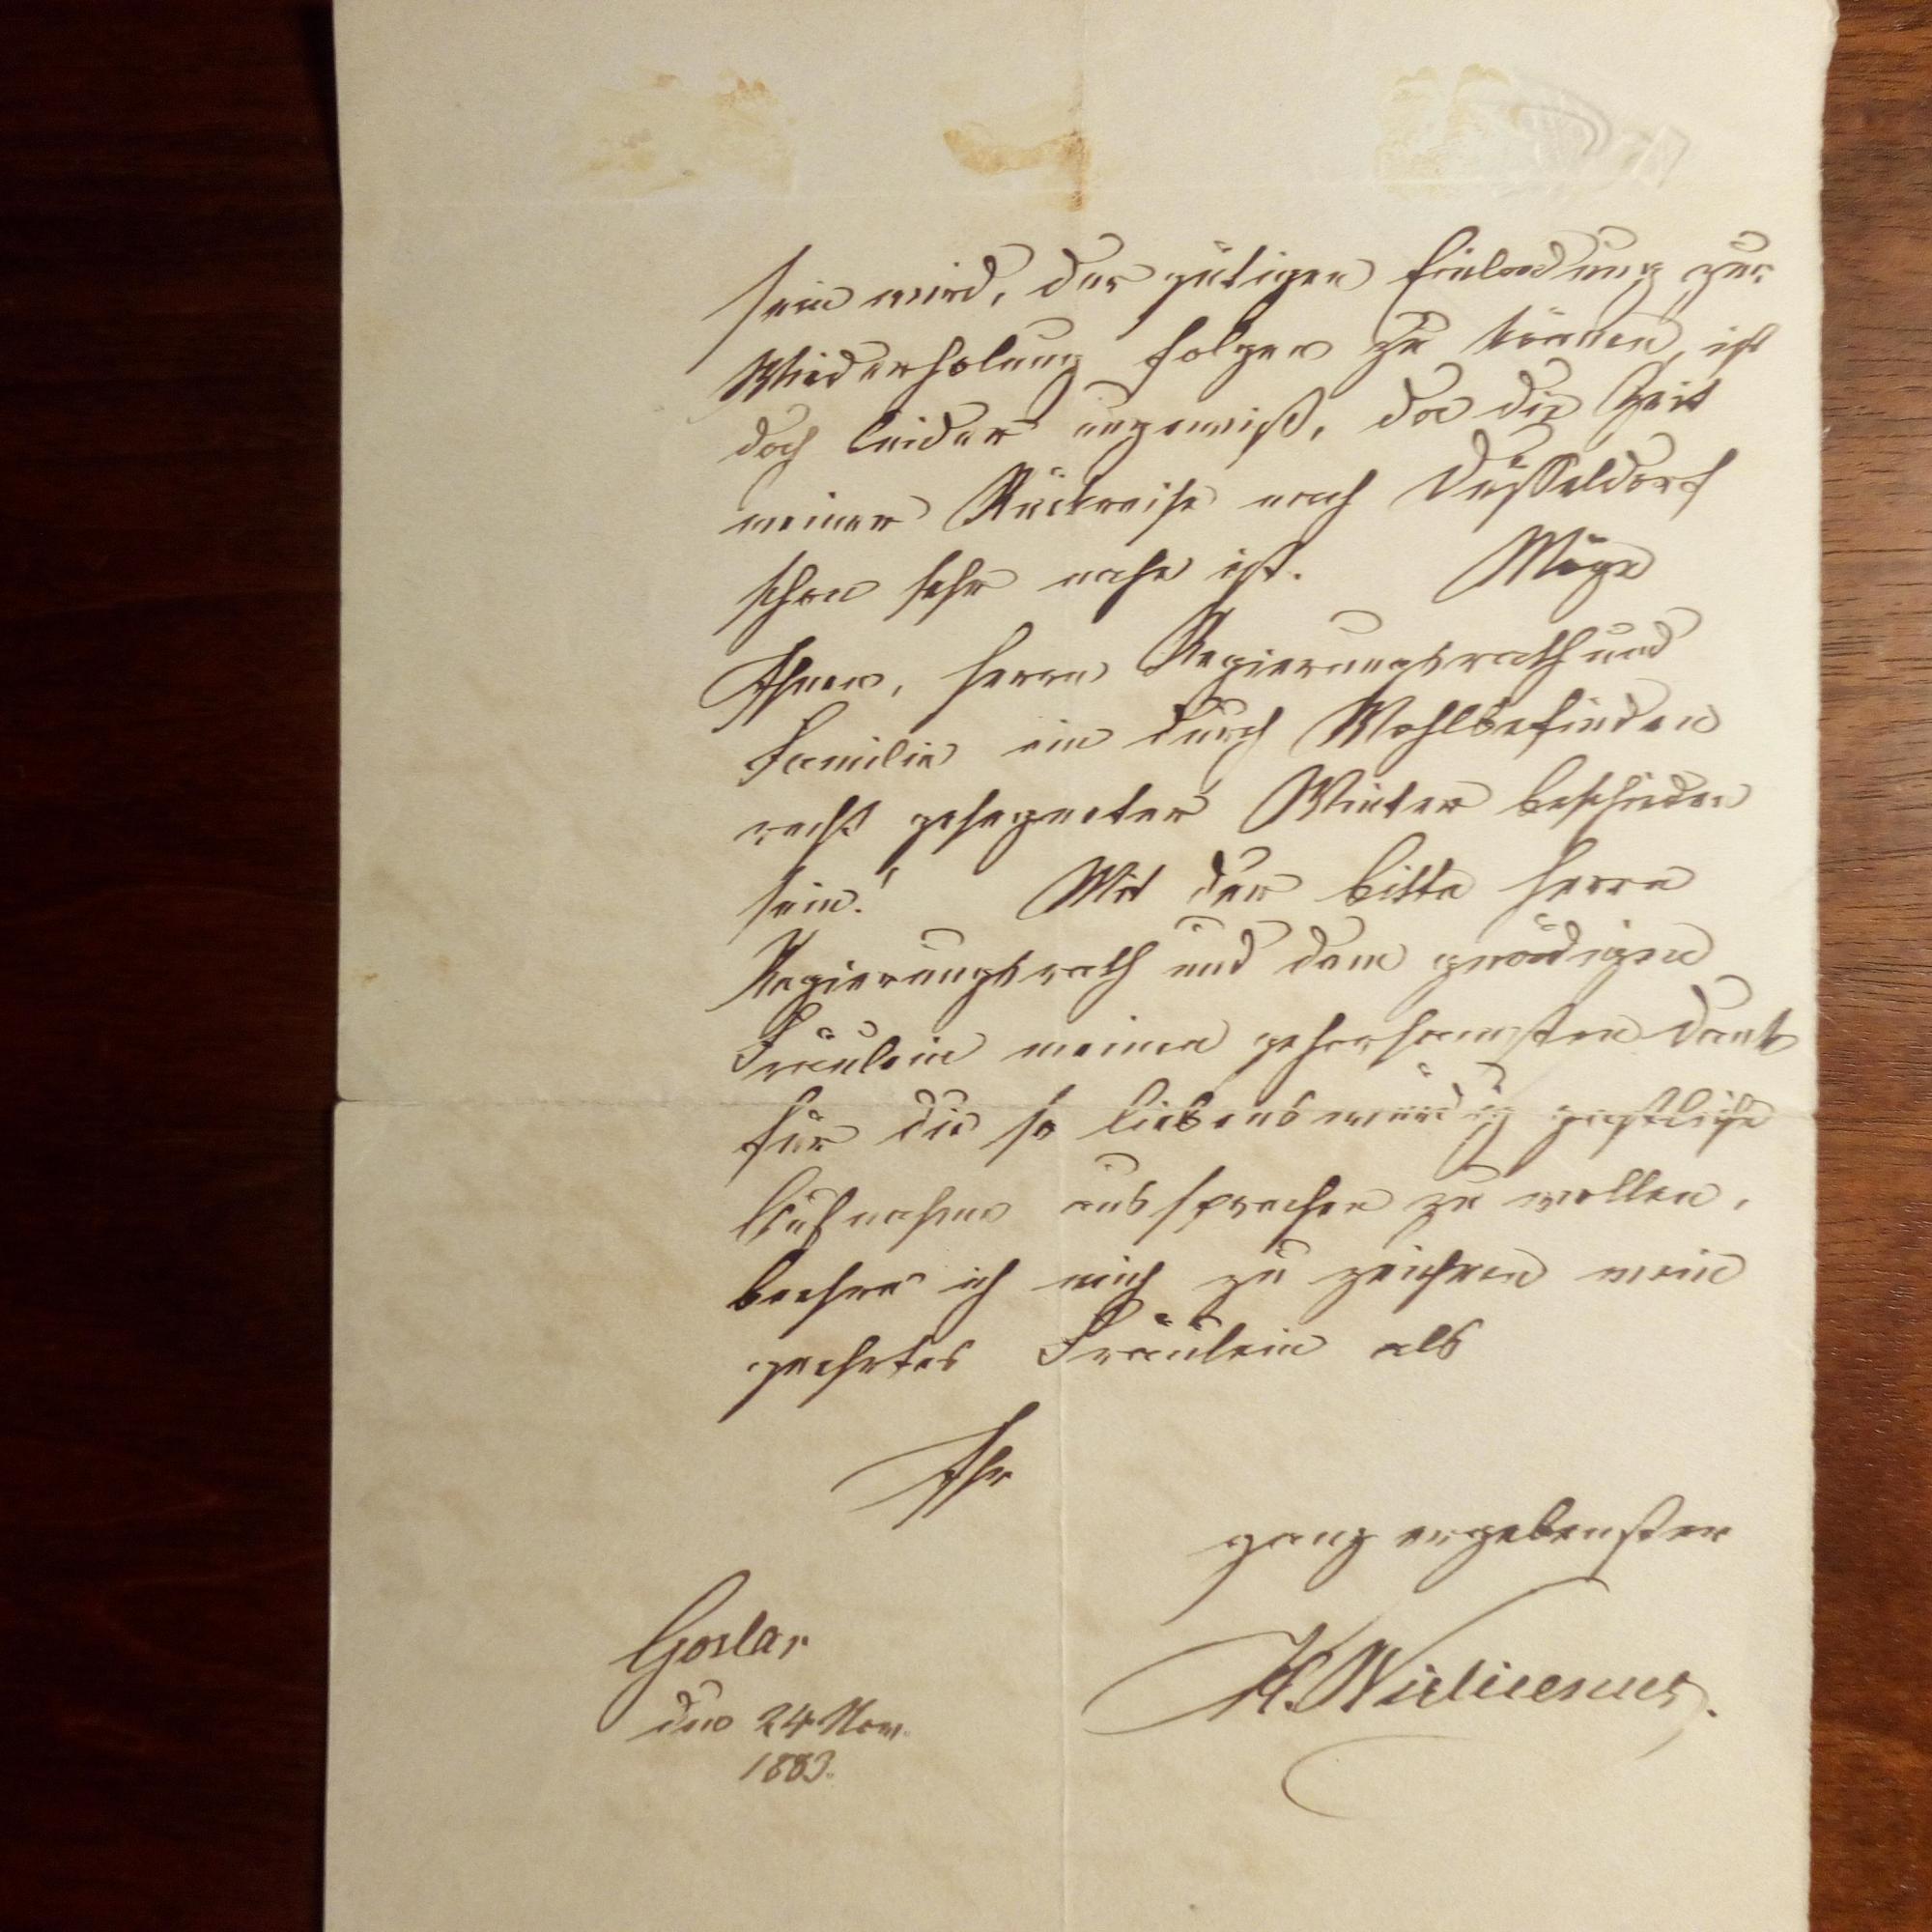 sein wird, der gütigen Einladung zur
Wiederholung folgen zu können, ist
doch leider ungewiß, da die Zeit
meiner Rückreise nach Düsseldorf
schon sehr nahe ist. Möge
Ihnen, Herrn Regierungsrath und
Familie ein durch Wohlbefinden
recht gesegneter Winter beschieden
sein! Mit der Bitte Herrn
Regierungsrath und dem gnädigen
Fräulein meinen gehorsamsten Dank
für die so liebenswürdig gastliche
Aufnahme aussprechen zu wollen,
beehre ich mich zu zeichnen mein
geehrtes Fräulein als
Ihr
ganz ergebenster
H. Wislicenus.
Goslar
den 24 Nov.
1883.